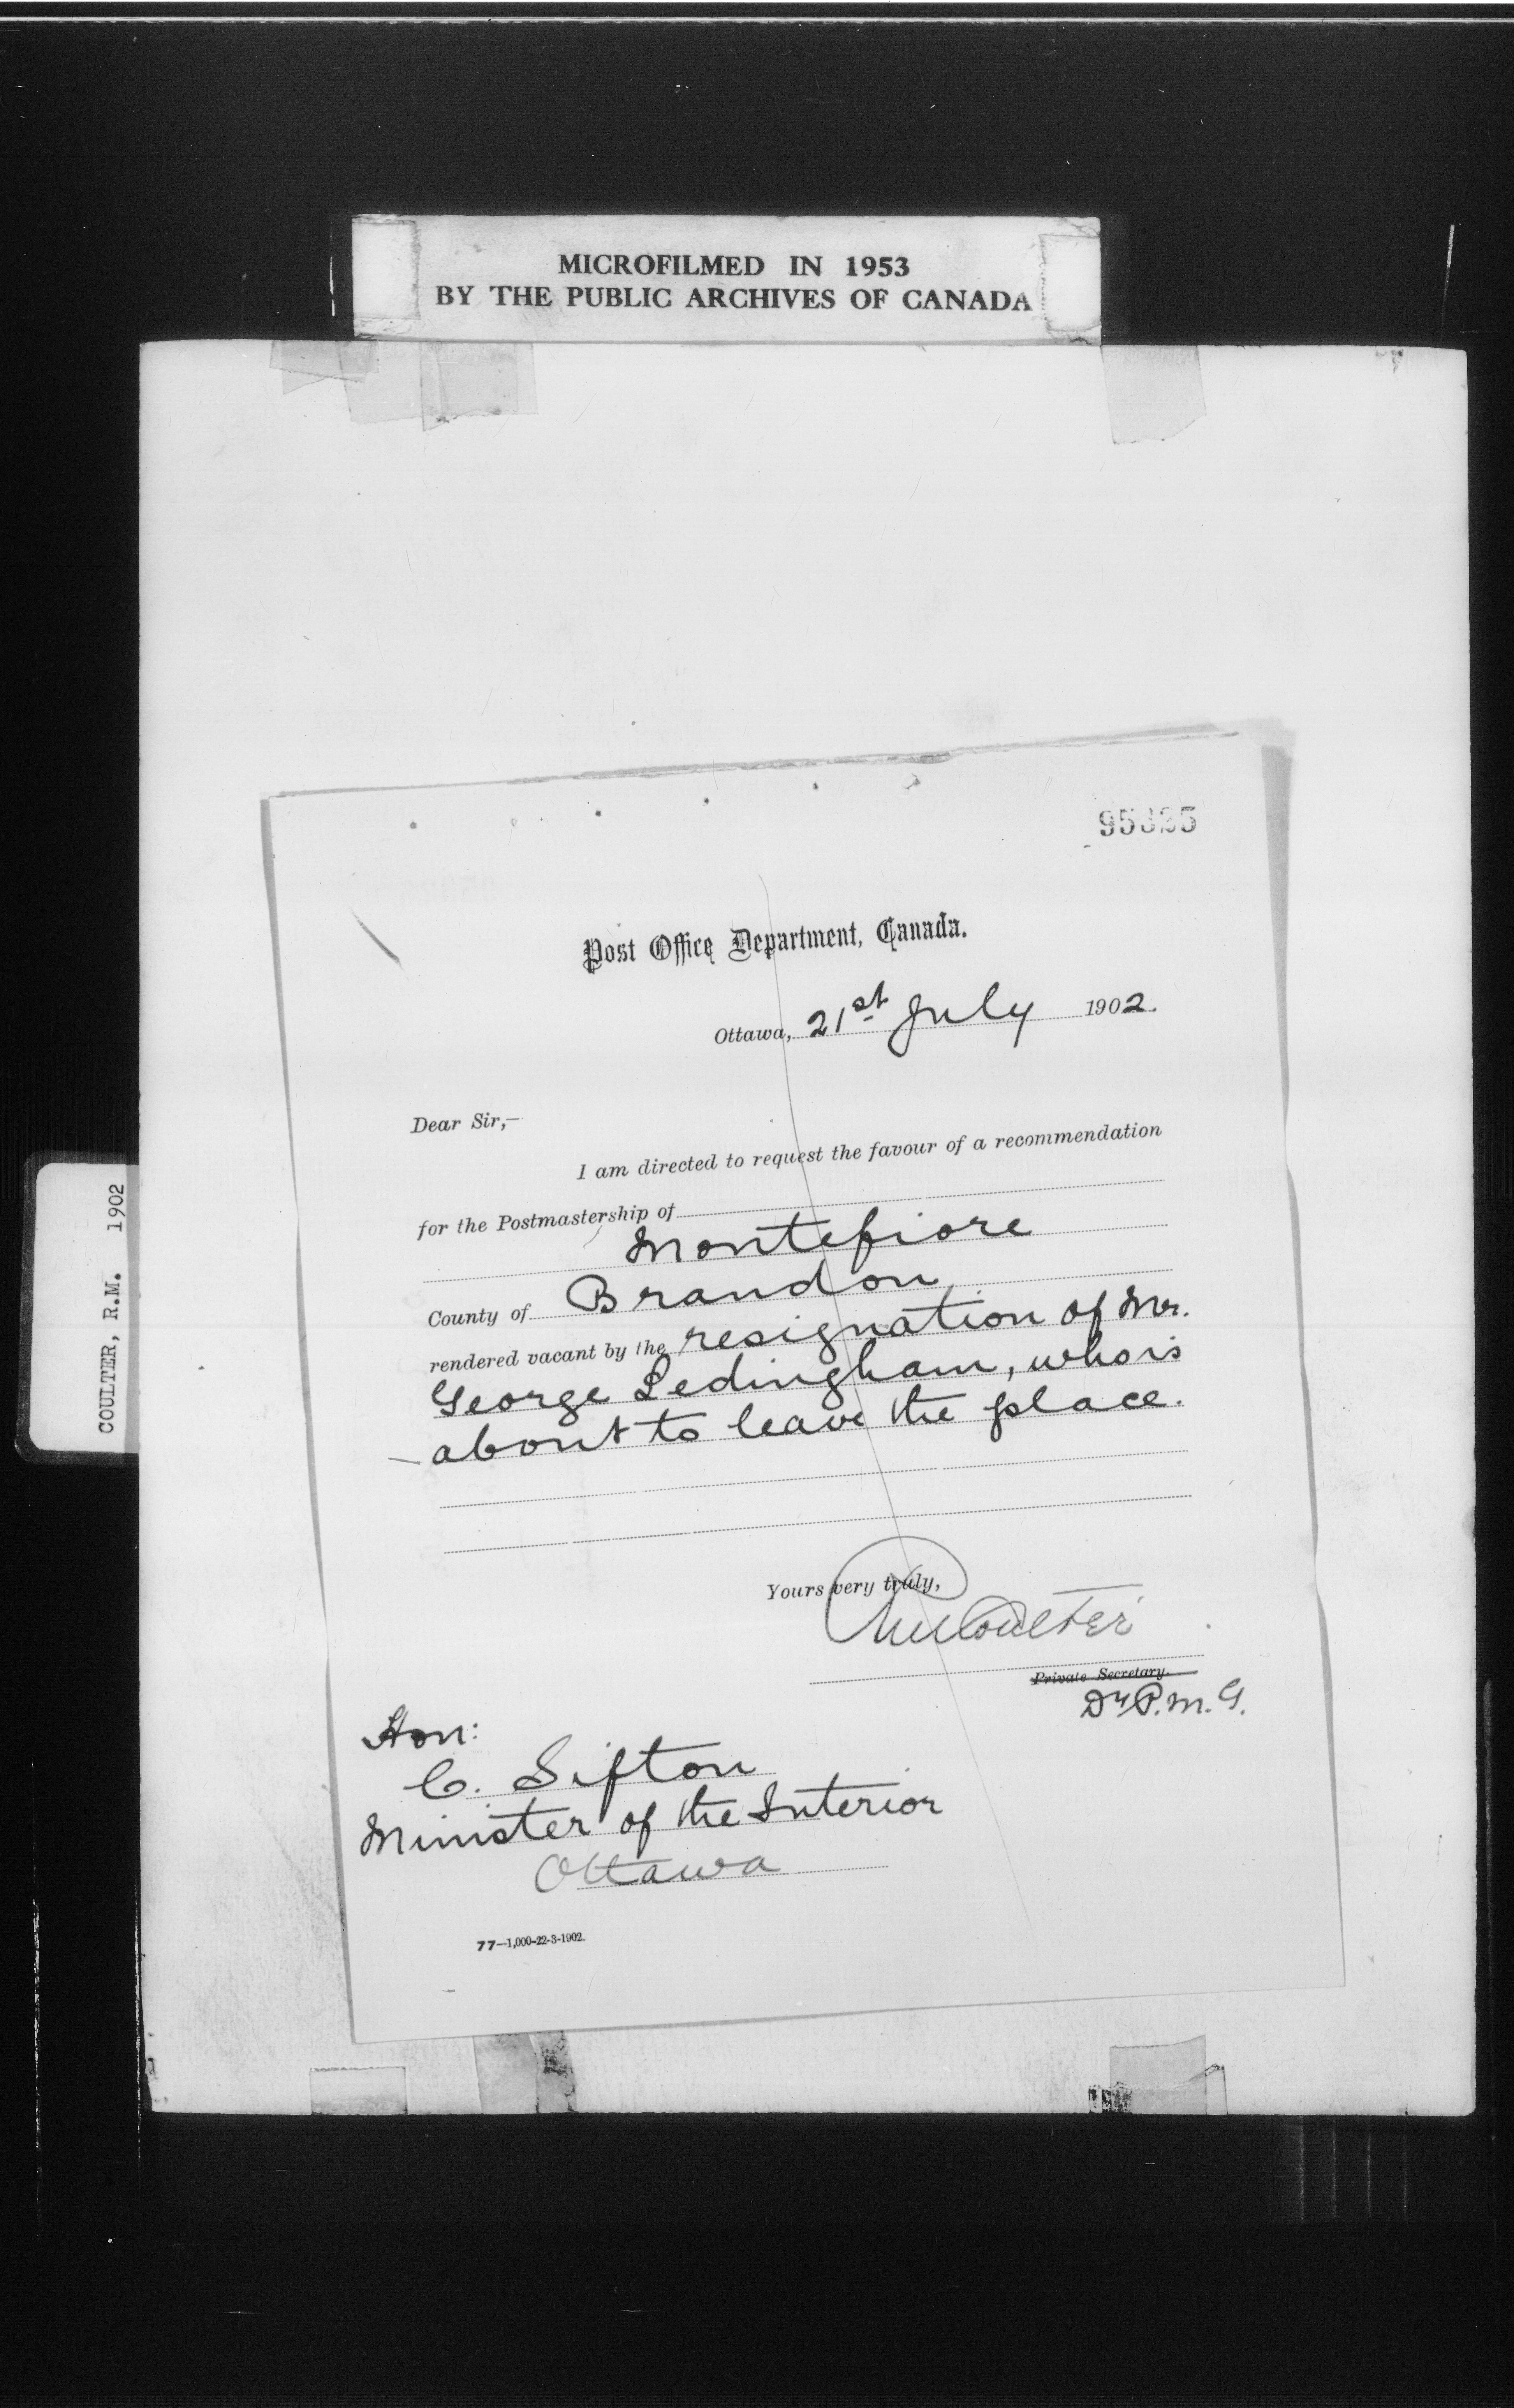 MICROFILMED IN 1953
BY THE PUBLIC ARCHIVES OF CANADA
COULTER, R.M. 1902
Post Office Department, Canada.
Ottawa, 21st July 1902.
Dear Sir,—
I am directed to request the favour of a recommendation
for the Postmastership of
Montefiore
County of Brandon,
rendered vacant by the resignation of Mr.
George Ledingham, who is
about to leave the place.
Yours very truly,
RM Coulter
Private Secretary.
Dy P.M.G.
Hon:
C. Sifton
Minister of the Interior
Ottawa
77—1,000-22-3-1902.